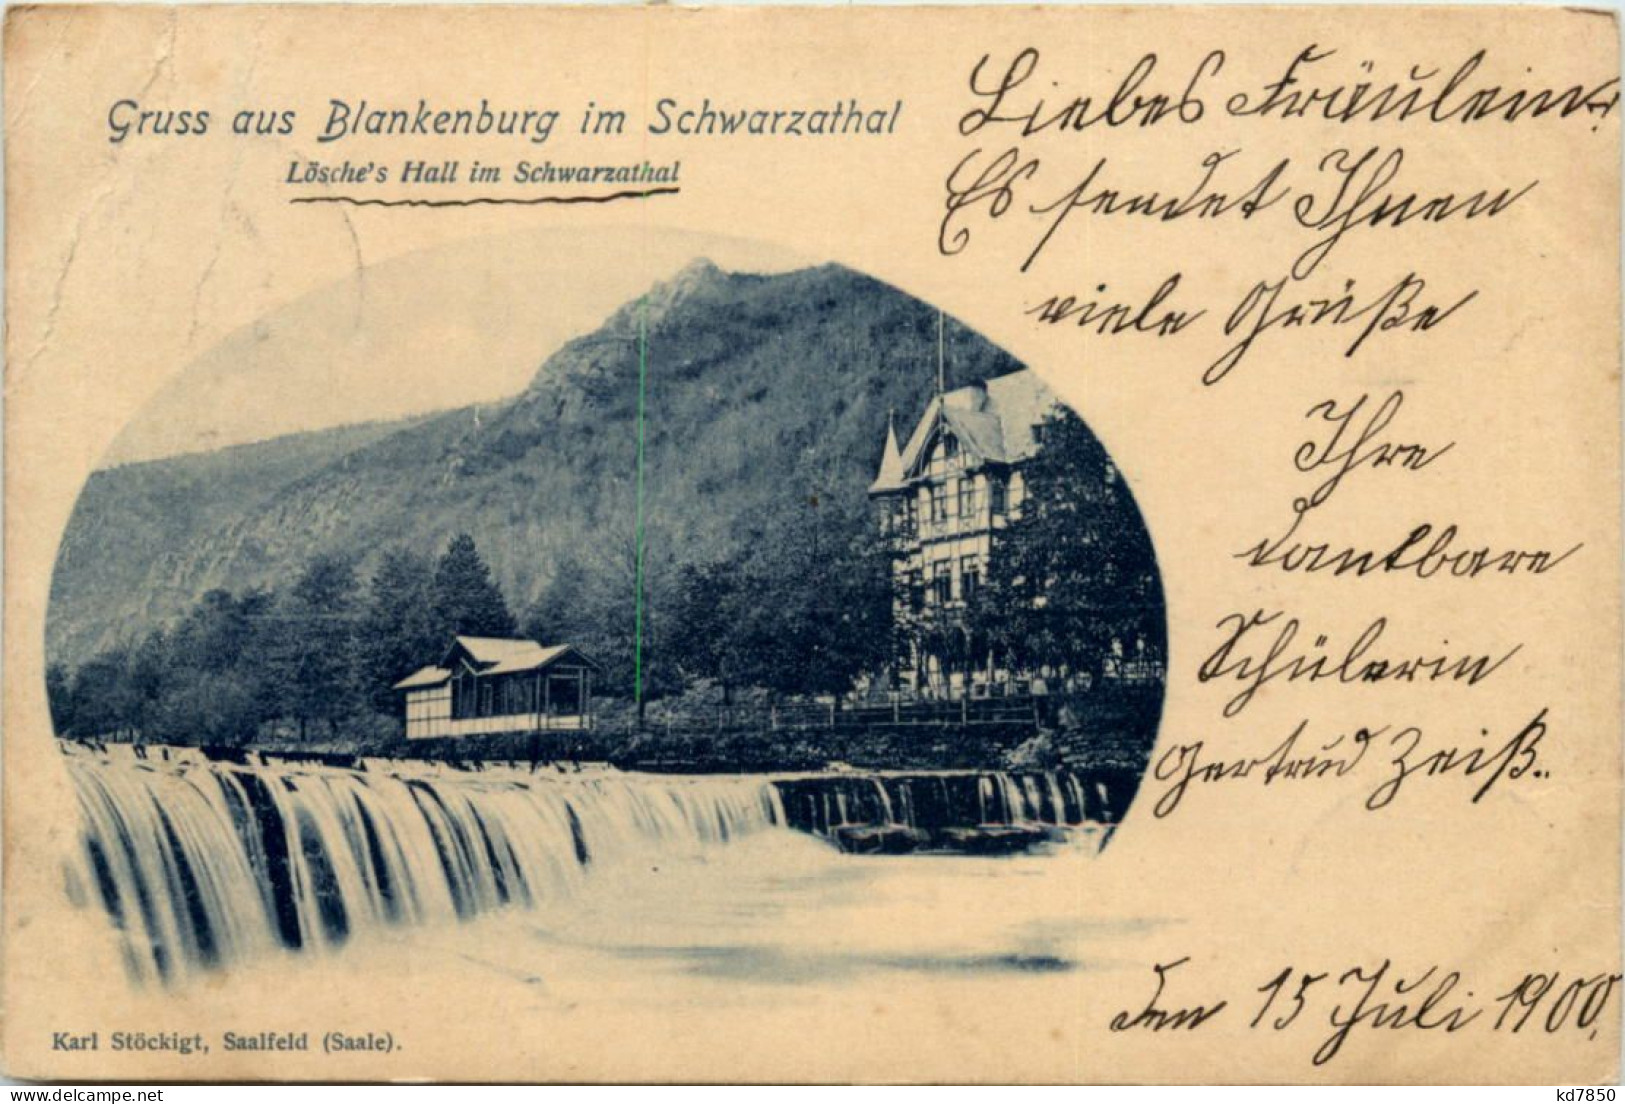 Gruss aus Blankenburg im Schwarzathal
Lösche's Hall im Schwarzathal
Liebes Fräulein!
Es sendet Ihnen
viele Grüße
Ihre
dankbare
Schülerin
Gertrud Zeiß.
den 15 Juli 1900.
Karl Stöckigt, Saalfeld (Saale).
delcampe.net
kd7850